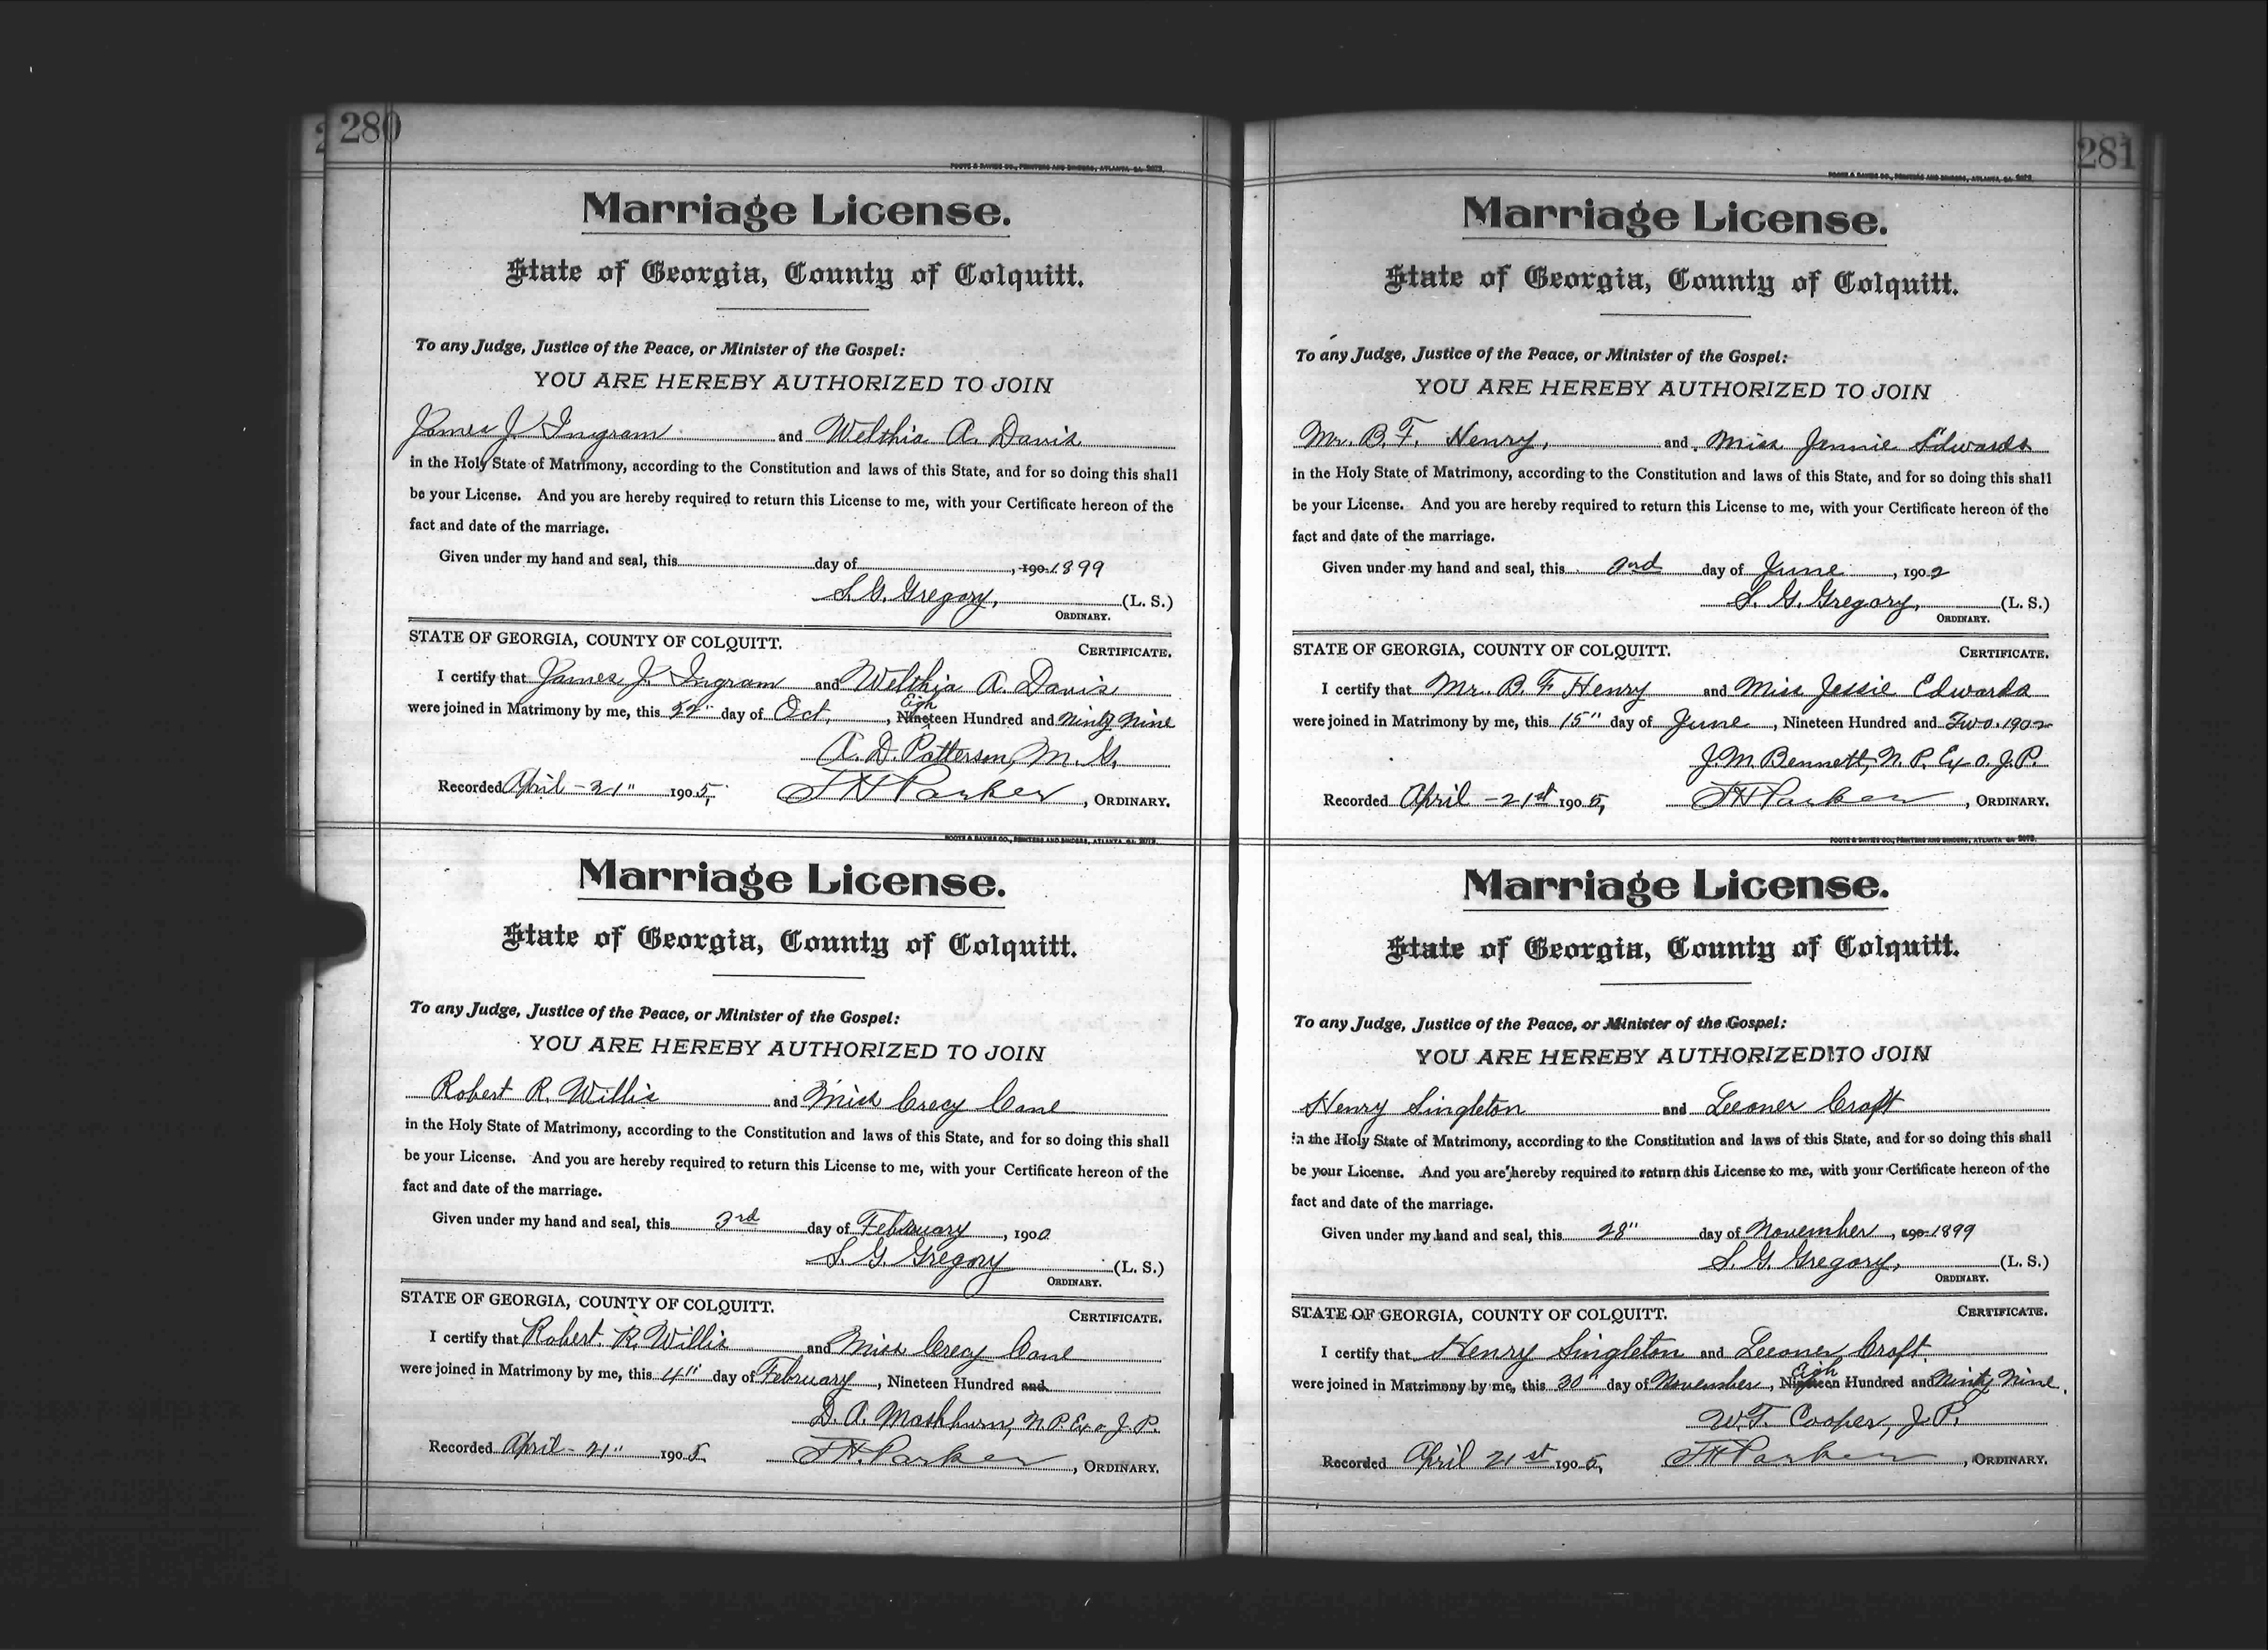 280
FOOTE & DAVIES CO., PRINTERS AND BINDERS, ATLANTA, GA. 2072.
Marriage License.
State of Georgia, County of Colquitt.
To any Judge, Justice of the Peace, or Minister of the Gospel:
YOU ARE HEREBY AUTHORIZED TO JOIN
James J. Ingram and Welthia A. Davis
in the Holy State of Matrimony, according to the Constitution and laws of this State, and for so doing this shall
be your License. And you are hereby required to return this License to me, with your Certificate hereon of the
fact and date of the marriage.
Given under my hand and seal, this day of , 190 1899
S. G. Gregory, (L. S.)
ORDINARY.
STATE OF GEORGIA, COUNTY OF COLQUITT.
CERTIFICATE.
I certify that James J. Ingram and Welthia A. Davis
Eigh
were joined in Matrimony by me, this 22" day of Oct, , Nineteen Hundred and Ninty Nine
A. D. Patterson, M. G.
Recorded April - 21" 1905, J H Parker , ORDINARY.
FOOTE & DAVIES CO., PRINTERS AND BINDERS, ATLANTA, GA. 2072.
Marriage License.
State of Georgia, County of Colquitt.
To any Judge, Justice of the Peace, or Minister of the Gospel:
YOU ARE HEREBY AUTHORIZED TO JOIN
Robert R. Willis and Miss Crecy Cone
in the Holy State of Matrimony, according to the Constitution and laws of this State, and for so doing this shall
be your License. And you are hereby required to return this License to me, with your Certificate hereon of the
fact and date of the marriage.
Given under my hand and seal, this 3rd day of February , 1900
S. G. Gregory (L. S.)
ORDINARY.
STATE OF GEORGIA, COUNTY OF COLQUITT.
CERTIFICATE.
I certify that Robert. R. Willis and Miss Crecy Cone
were joined in Matrimony by me, this 4" day of February , Nineteen Hundred and
D. A. Mashburn, N. P. Ex o J. P.
Recorded April - 21" 1905 J H. Parker , ORDINARY.
281
FOOTE & DAVIES CO., PRINTERS AND BINDERS, ATLANTA, GA. 2072.
Marriage License.
State of Georgia, County of Colquitt.
To any Judge, Justice of the Peace, or Minister of the Gospel:
YOU ARE HEREBY AUTHORIZED TO JOIN
Mr. B. F. Henry, and Miss Jennie Edwards
in the Holy State of Matrimony, according to the Constitution and laws of this State, and for so doing this shall
be your License. And you are hereby required to return this License to me, with your Certificate hereon of the
fact and date of the marriage.
Given under my hand and seal, this 2nd day of June , 1902
S. G. Gregory, (L. S.)
ORDINARY.
STATE OF GEORGIA, COUNTY OF COLQUITT.
CERTIFICATE.
I certify that Mr. B. F Henry and Miss Jessie Edwards
were joined in Matrimony by me, this 15" day of June , Nineteen Hundred and Two. 1902
J. M. Bennett, N. P. Ex o. J. P.
Recorded April - 21st 1905, J H Parker , ORDINARY.
FOOTE & DAVIES CO., PRINTERS AND BINDERS, ATLANTA, GA. 2072.
Marriage License.
State of Georgia, County of Colquitt.
To any Judge, Justice of the Peace, or Minister of the Gospel:
YOU ARE HEREBY AUTHORIZED TO JOIN
Henry Singleton and Leoner Croft
in the Holy State of Matrimony, according to the Constitution and laws of this State, and for so doing this shall
be your License. And you are hereby required to return this License to me, with your Certificate hereon of the
fact and date of the marriage.
Given under my hand and seal, this 28" day of November , 190 1899
S. G. Gregory, (L. S.)
ORDINARY.
STATE OF GEORGIA, COUNTY OF COLQUITT.
CERTIFICATE.
I certify that Henry Singleton and Leoner Croft.
Eigh
were joined in Matrimony by me, this 30" day of November , Nineteen Hundred and Ninty Nine.
W. T. Cooper, J. P.
Recorded April 21st 1905, J H Parker , ORDINARY.